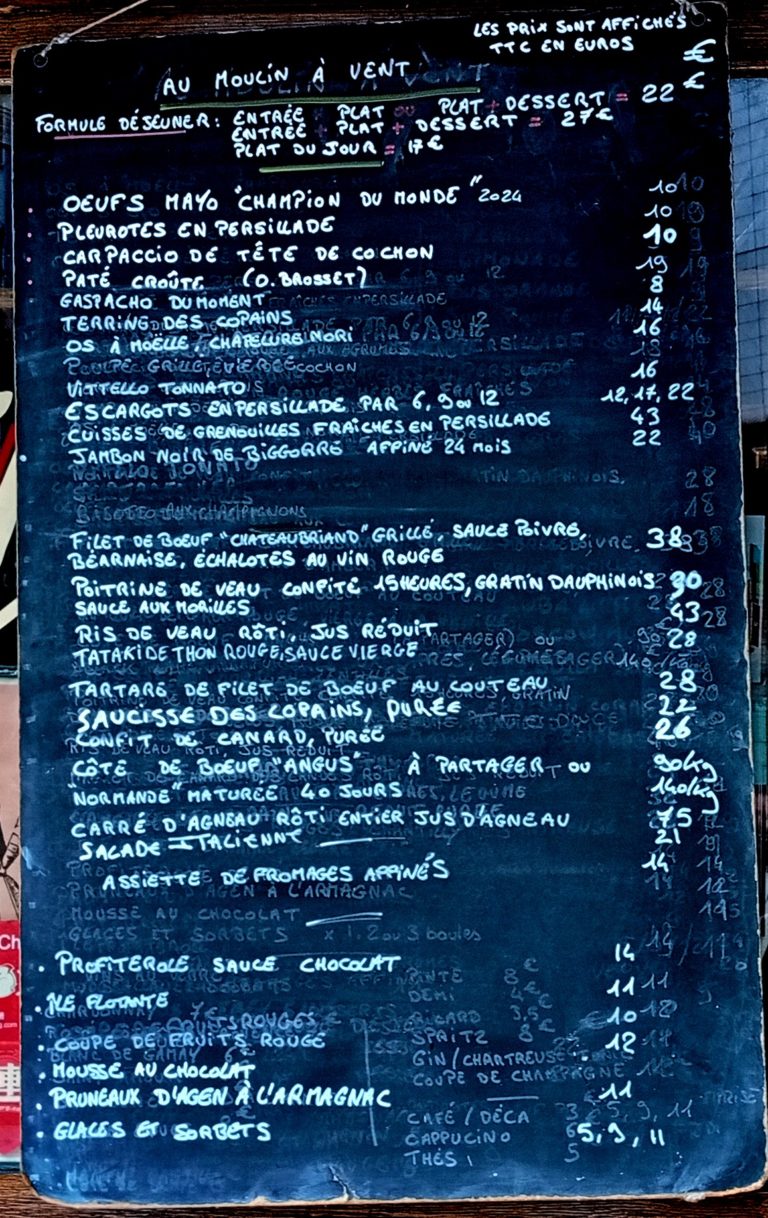 LES PRIX SONT AFFICHÉS
TTC EN EUROS
€
€
AU MOULIN À VENT
FORMULE DÉJEUNER: ENTRÉE + PLAT OU PLAT + DESSERT = 22
ENTRÉE + PLAT + DESSERT = 27€
PLAT DU JOUR = 17€
OEUFS MAYO "CHAMPION DU MONDE" 2024 10
PLEUROTES EN PERSILLADE 10
CARPACCIO DE TÊTE DE COCHON 10
PATÉ CROÛTE (O. BROSSET) 19
GASPACHO DU MOMENT 8
TERRINE DES COPAINS 14
OS À MOËLLE, CHAPELURE NORI 16
VITTELLO TONNATO 16
ESCARGOTS EN PERSILLADE PAR 6, 9 ou 12 12, 17, 22
CUISSES DE GRENOUILLES FRAÎCHES EN PERSILLADE 43
JAMBON NOIR DE BIGGORRE AFFINÉ 24 MOIS 22
FILET DE BOEUF "CHATEAUBRIAND" GRILLÉ, SAUCE POIVRE, 38
BÉARNAISE, ÉCHALOTES AU VIN ROUGE
POITRINE DE VEAU CONFITE 15 HEURES, GRATIN DAUPHINOIS 30
SAUCE AUX MORILLES
RIS DE VEAU RÔTI, JUS RÉDUIT 43
TATAKI DE THON ROUGE, SAUCE VIERGE 28
TARTARE DE FILET DE BOEUF AU COUTEAU 28
SAUCISSE DES COPAINS, PURÉE 22
CONFIT DE CANARD, PURÉE 26
CÔTE DE BOEUF "ANGUS" À PARTAGER OU 90/kg
"NORMANDE" MATURÉE 40 JOURS 140/kg
CARRÉ D'AGNEAU RÔTI ENTIER JUS D'AGNEAU 75
SALADE ITALIENNE 21
ASSIETTE DE FROMAGES AFFINÉS 14
MOUSSE AU CHOCOLAT
GLACES ET SORBETS x 1, 2 ou 3 boules
PROFITEROLE SAUCE CHOCOLAT 14
ILE FLOTANTE 11
COUPE DE FRUITS ROUGE 10
MOUSSE AU CHOCOLAT 12
PRUNEAUX D'AGEN À L'ARMAGNAC 11
GLACES ET SORBETS 5, 9, 11
PINTE 8€
DEMI 4€
RICARD 3,5€
SPRITZ 8€
GIN / CHARTREUSE
COUPE DE CHAMPAGNE
CAFÉ / DÉCA
CAPPUCINO
THÉS 5